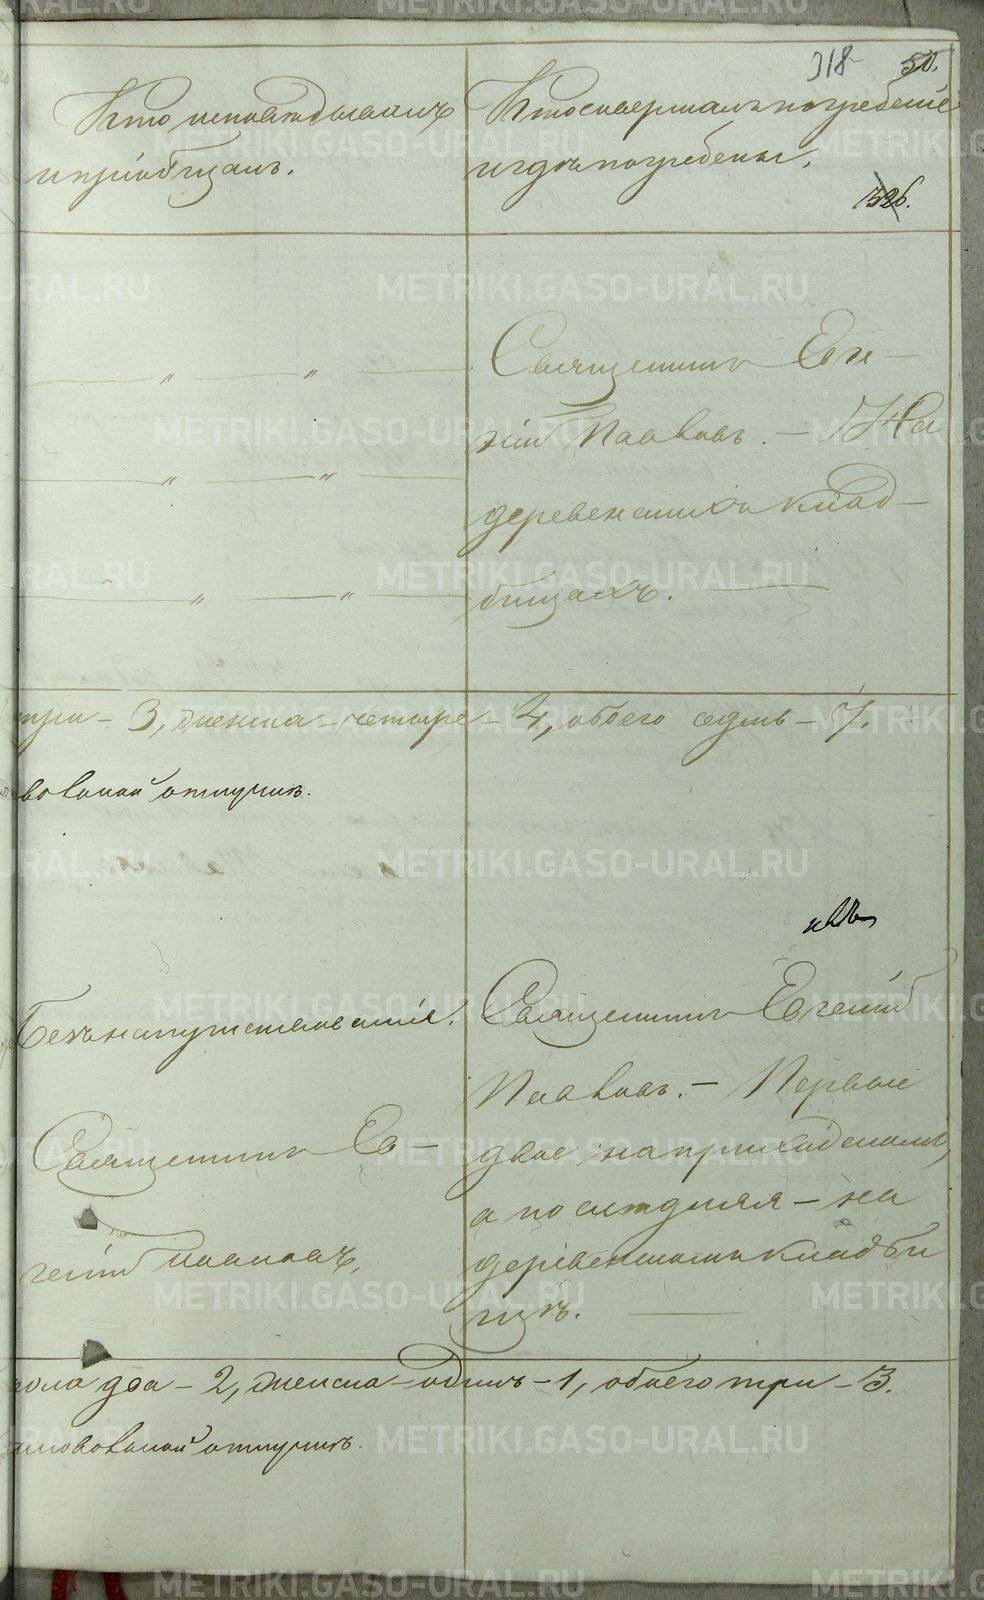 318 50.
Кто исповѣдывалъ
и пріобщалъ.
Кто совершалъ погребеніе
и гдѣ погребены.
326.
— „ — „ —
— „ — „ —
— „ — „ —
Священникъ Евге-
ній Павловъ. — На
деревенскихъ клад-
бищахъ. —
три — 3, женска — четыре — 4, обоего седмь — 7.
отлучкѣ.
Безъ напутствованія.
Священникъ Ев-
геній Павловъ,
Священникъ Евгеній
Павловъ. — Первые
двое на приходскомъ,
а послѣдняя — на
деревенскомъ кладби
щѣ. —
пола два — 2, женска — одинъ — 1, обоего три — 3.
отлучкѣ.
METRIKI.GASO-URAL.RU